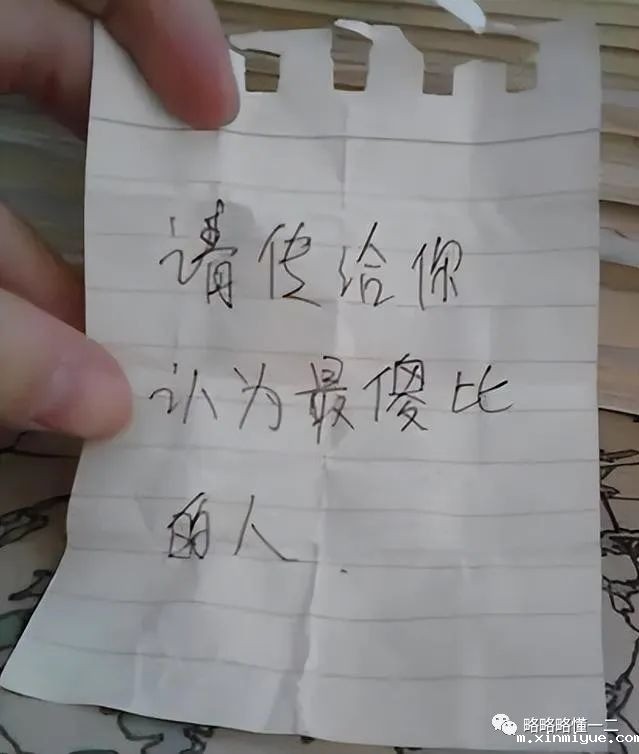 请传给你
认为最傻比
的人.
略略略懂一二
m.xinmiyue.com